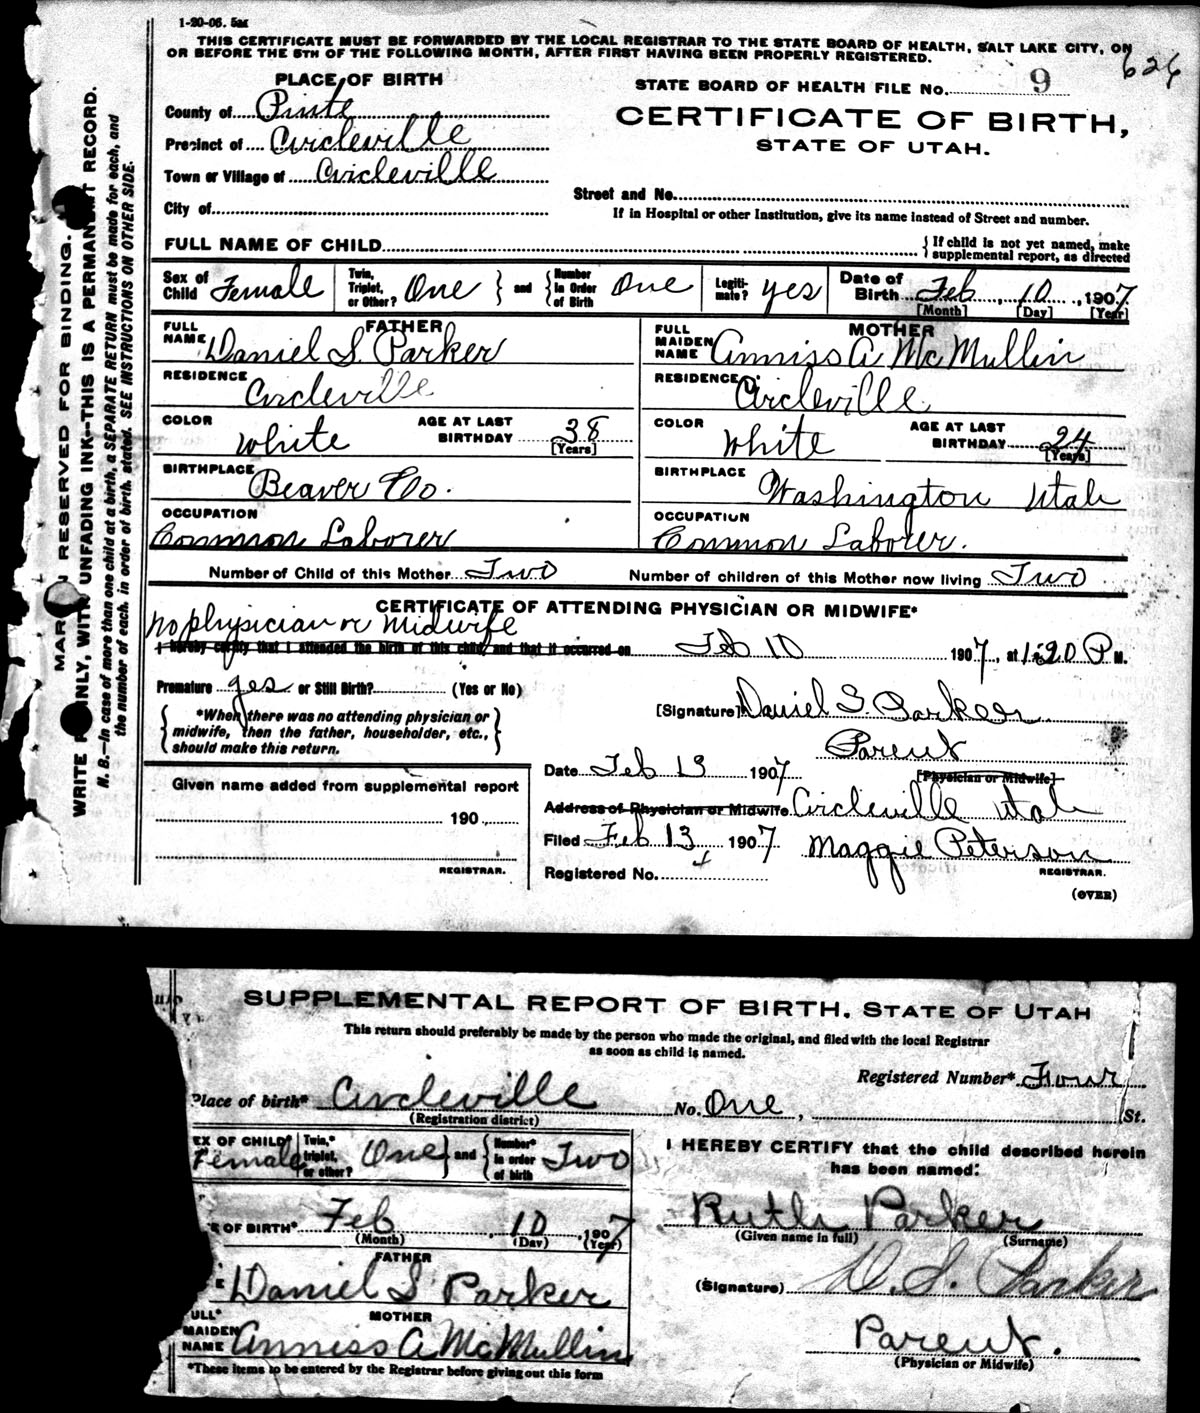 1-20-06. 5M
THIS CERTIFICATE MUST BE FORWARDED BY THE LOCAL REGISTRAR TO THE STATE BOARD OF HEALTH, SALT LAKE CITY, ON
OR BEFORE THE 5TH OF THE FOLLOWING MONTH, AFTER FIRST HAVING BEEN PROPERLY REGISTERED.
626
PLACE OF BIRTH
STATE BOARD OF HEALTH FILE No. 9
County of Piute
CERTIFICATE OF BIRTH,
STATE OF UTAH.
Precinct of Circleville
Town or Village of Circleville
Street and No.
City of
If in Hospital or other Institution, give its name instead of Street and number.
FULL NAME OF CHILD
If child is not yet named, make
supplemental report, as directed
Sex of Child Female
Twin, Triplet, or Other? One and Number in Order of Birth One
Legitimate? yes
Date of Birth Feb 10, 1907
[Month] [Day] [Year]
FATHER
FULL NAME Daniel S. Parker
RESIDENCE Circleville
COLOR White AGE AT LAST BIRTHDAY 38 [Years]
BIRTHPLACE Beaver Co.
OCCUPATION Common Laborer
MOTHER
FULL MAIDEN NAME Anniss A McMullin
RESIDENCE Circleville
COLOR White AGE AT LAST BIRTHDAY 24 [Years]
BIRTHPLACE Washington Utah
OCCUPATION Common Laborer.
Number of Child of this Mother Two Number of children of this Mother now living Two
CERTIFICATE OF ATTENDING PHYSICIAN OR MIDWIFE*
No physician or Midwife
I hereby certify that I attended the birth of this child, and that it occurred on Feb 10 1907, at 1:20 P M.
Premature yes or Still Birth? (Yes or No)
[Signature] Daniel S. Parker
*When there was no attending physician or
midwife, then the father, householder, etc.,
should make this return.
Parent
[Physician or Midwife]
Date Feb 13 1907
Given name added from supplemental report
190
REGISTRAR.
Address of Physician or Midwife Circleville Utah
Filed Feb 13 1907 Maggie Peterson
Registered No. REGISTRAR.
(OVER)
RESERVED FOR BINDING.
WRITE PLAINLY, WITH UNFADING INK--THIS IS A PERMANENT RECORD.
N. B.--In case of more than one child at a birth, a SEPARATE RETURN must be made for each, and
the number of each, in order of birth, stated. SEE INSTRUCTIONS ON OTHER SIDE.
SUPPLEMENTAL REPORT OF BIRTH. STATE OF UTAH
This return should preferably be made by the person who made the original, and filed with the local Registrar
as soon as child is named.
Registered Number* Four
Place of birth* Circleville No. One, St.
(Registration district)
EX OF CHILD* Female Twin,* triplet, or other? One and Number* in order of birth Two
I HEREBY CERTIFY that the child described herein
has been named:
E OF BIRTH* Feb 10, 1907
(Month) (Day) (Year)
Ruth Parker
(Given name in full) (Surname)
FATHER
Daniel S Parker
(Signature) D. S. Parker
ULL* MAIDEN NAME MOTHER
Anniss A McMullin
Parent.
(Physician or Midwife)
*These items to be entered by the Registrar before giving out this form